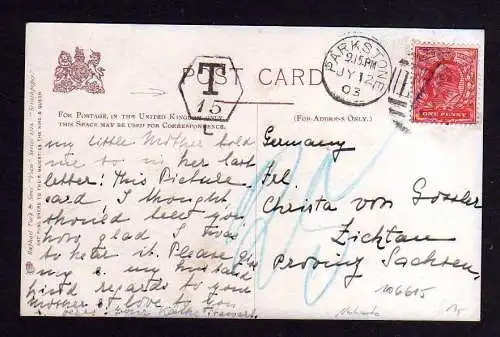 POST CARD
T
15
C
PARKSTONE
9.15.PM
JY 12
03
ONE PENNY
FOR POSTAGE, IN THE UNITED KINGDOM ONLY,
THIS SPACE MAY BE USED FOR CORRESPONDENCE.
(FOR ADDRESS ONLY.)
my little Mother told
me so in her last
letter! This Picture
card, I thought,
should tell you
how glad I was
to hear it. Please give
my & my husband
kind regards to your
Mother & love to you
Germany
Frl.
Christa von Gossler
Zichtau
Provinz Sachsen.
106615